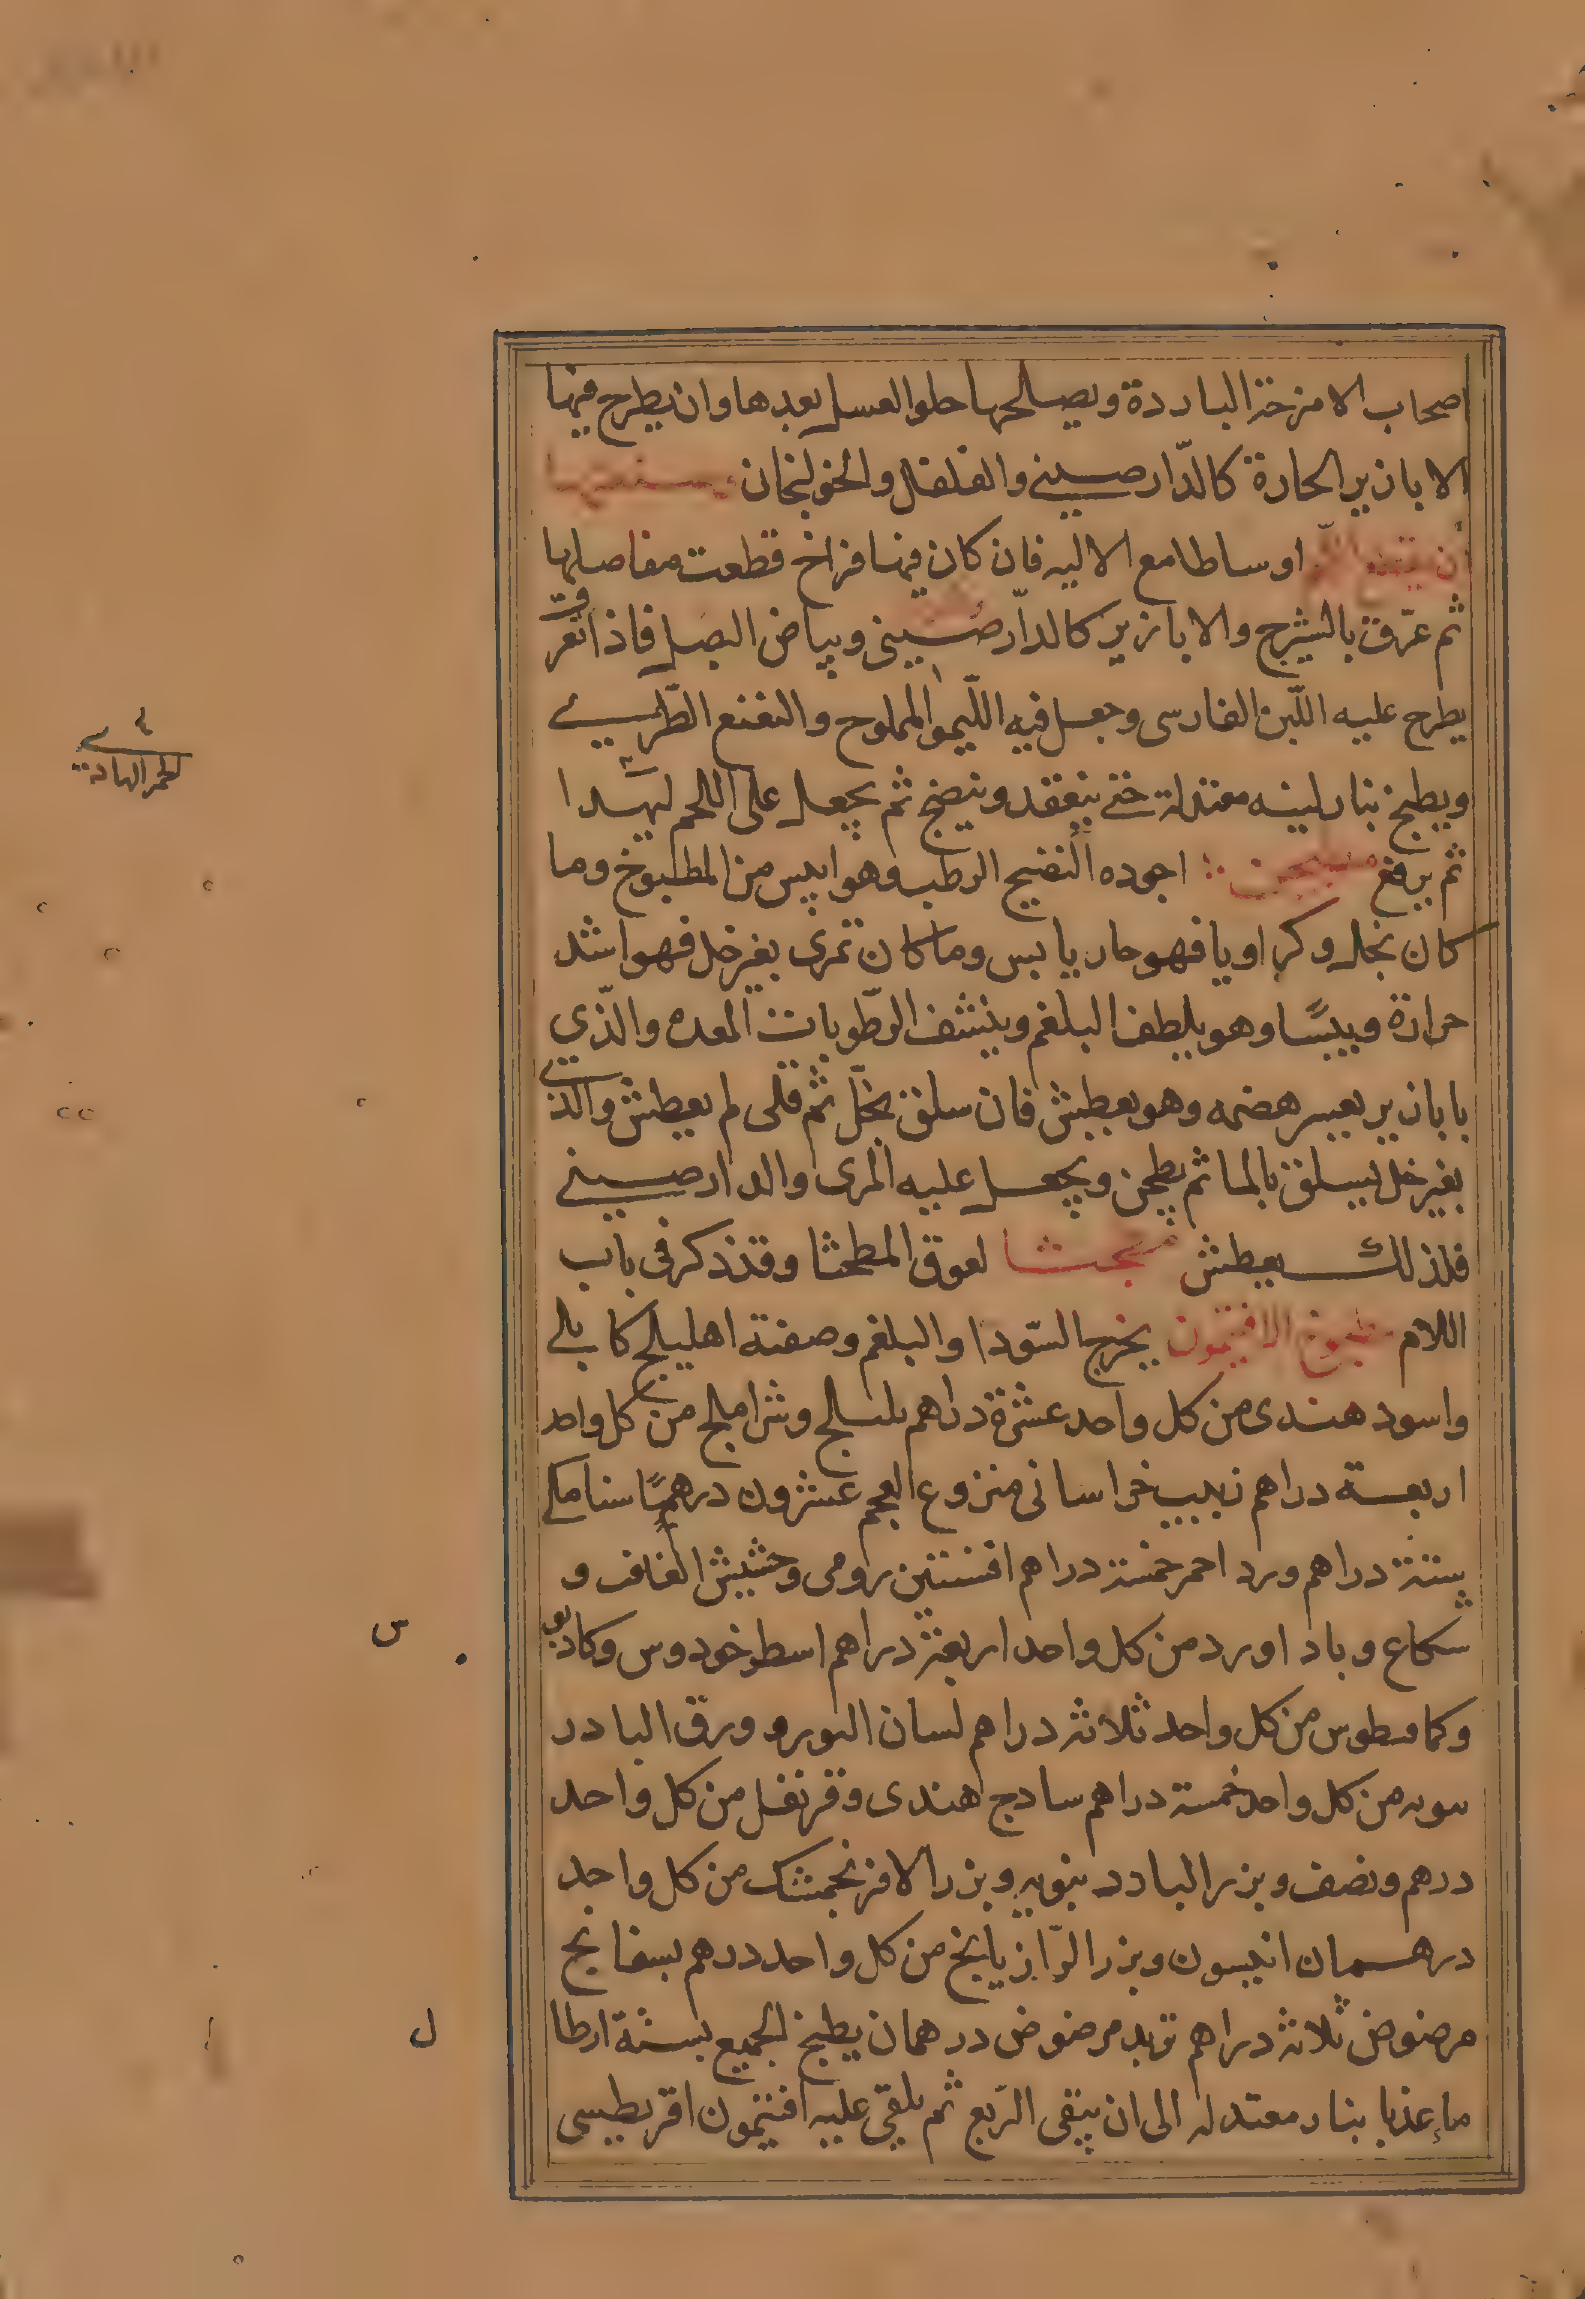 اصحاب الامزجة الباردة ويصلحها حلوا العسل بعدها وان يطرح فيها
الابازير الحارة كالدّارصيني والفلفل والخولنجان وصنعتها
أن اوساطا مع الاليه فان كان فيها فراخ قطعت مفاصلها
ثم عرّق بالشيرج والابازير كالدّارصيني وبياض البصل فاذا تعرّقت
يطرح عليه اللّبن الفارسى وجعل فيه اللّيمو المملوح والنعنع الطّري
ويطبخ بنار لينه معتدلة حتى ينعقد وينضج ثم يجعل على اللحم ليهدا
ثم يرفع اجوده النضيج الرطب وهو ايبس من المطبوخ وما
كان بخل وكراويا فهو حار يابس وما كان بمرى بغير خل فهو اشد
حرارة ويبسًا وهو يلطف البلغم وينشف الرّطوبات المعده والّذي
بابازير يعسر هضمه وهو يعطش فان سلق بخلّ ثم قلى لم يعطش والذي
بغير خل ليسلق بالما ثم يطجن ويجعل عليه المرى والدارصيني
فلذلك يعطش لعوق المطحثا وقد ذكر فى باب
اللام مطبوخ الافتيمون يخرج السّودا والبلغم وصفته اهليلج كابلي
واسود هندى من كل واحد عشرة دراهم بليلج وشرامليج من كل واحد
اربعة دراهم زبيب خراسانى منزوع العجم عشرون درهمًا سنامكى
ستة دراهم ورد احمر خمسة دراهم افسنتين رومى وحشيش الغافت و
شكاع وباداورد من كل واحد اربعة دراهم اسطوخودوس وكادريو
وكمافيطوس من كل واحد ثلاثة دراهم لسان الثور و ورق البادر
نبويه من كل واحد خمسة دراهم سادج هندى وقرنفل من كل واحد
درهم ونصف وبزر البادرنبويه وبزر الافرنجمشك من كل واحد
درهمان انيسون وبزر الرّازيانج من كل واحد درهم بسفايج
مرضوض ثلاثة دراهم تربد مرضوض درهمان يطبخ الجميع بستة ارطا
ل
ماء عذبا بنار معتدله الى ان يبقى الرّبع ثم يلقى عليه افتيمون اقريطيسى
س